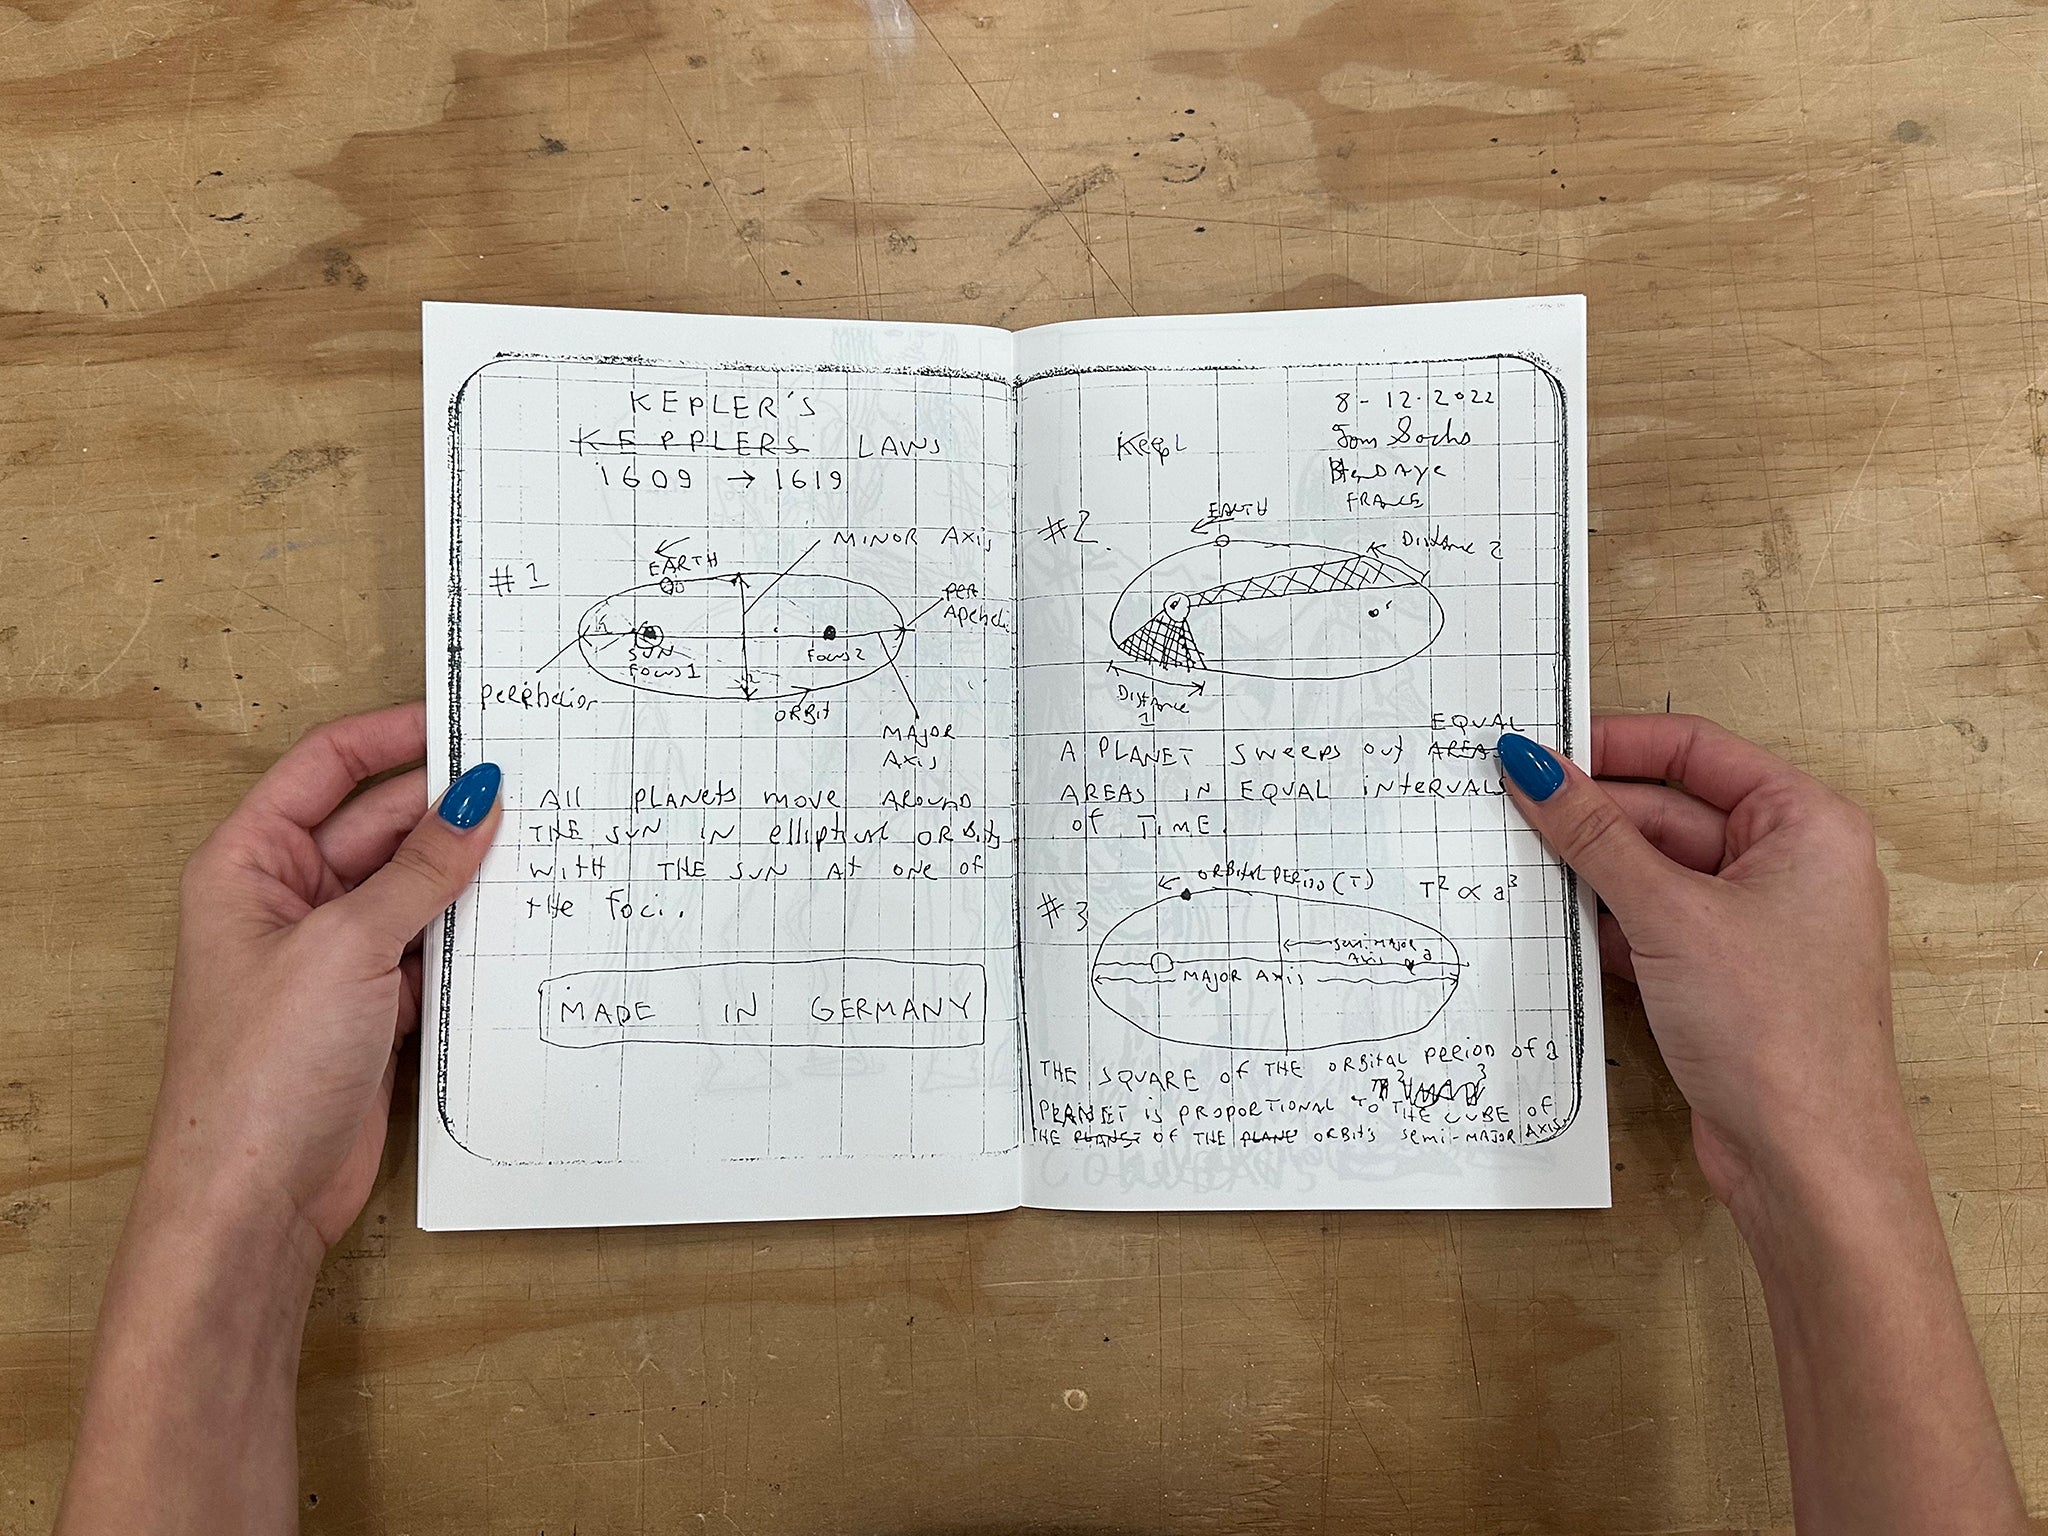 KEPLER'S
KEPPLERS LAWS
1609 → 1619
#1
EARTH
MINOR AXIS
SUN
FOCUS 1
FOCUS 2
ORBIT
MAJOR
AXIS
All PLANETS MOVE AROUND
THE SUN IN elliptical ORBITS
WITH THE SUN AT ONE OF
THE FOCI.
MADE IN GERMANY
8-12-2022
Tom Sachs
FRANCE
#2
EARTH
DISTANCE 2
DISTANCE
1
EQUAL
A PLANET SWEEPS OUT AREAS
AREAS IN EQUAL INTERVALS
OF TIME.
#3
ORBITAL PERIOD (T) T² ∝ a³
SEMI MAJOR
AXIS a
MAJOR AXIS
THE SQUARE OF THE ORBITAL PERIOD OF A
PLANET IS PROPORTIONAL TO THE CUBE OF
THE PLANET OF THE PLANE ORBITS SEMI-MAJOR AXIS